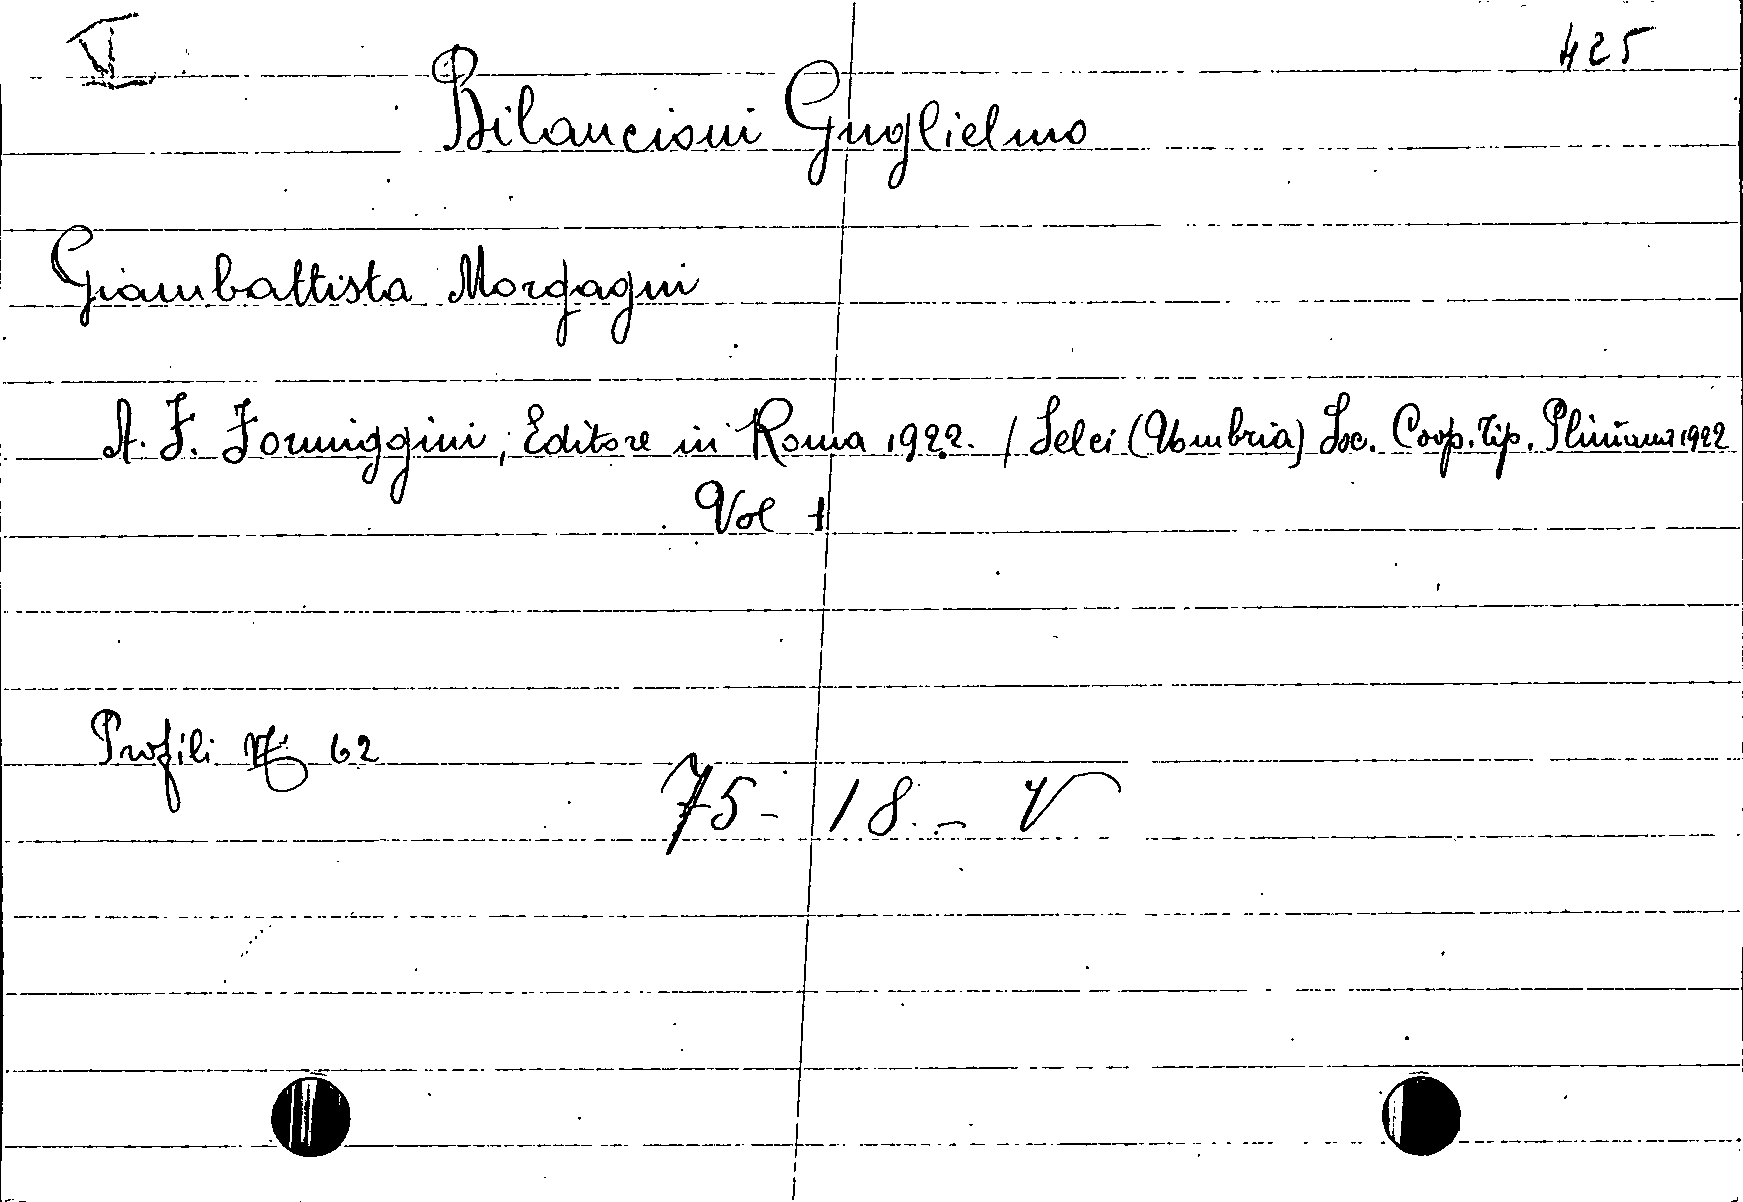 V 425
Bilancioni Guglielmo
Giambattista Morgagni
A. F. Formiggini, Editore in Roma 1922. / Selci (Umbria) Soc. Coop. Tip. Pliniana 1922
Vol 1
Profili No 62
75 - 18. - V